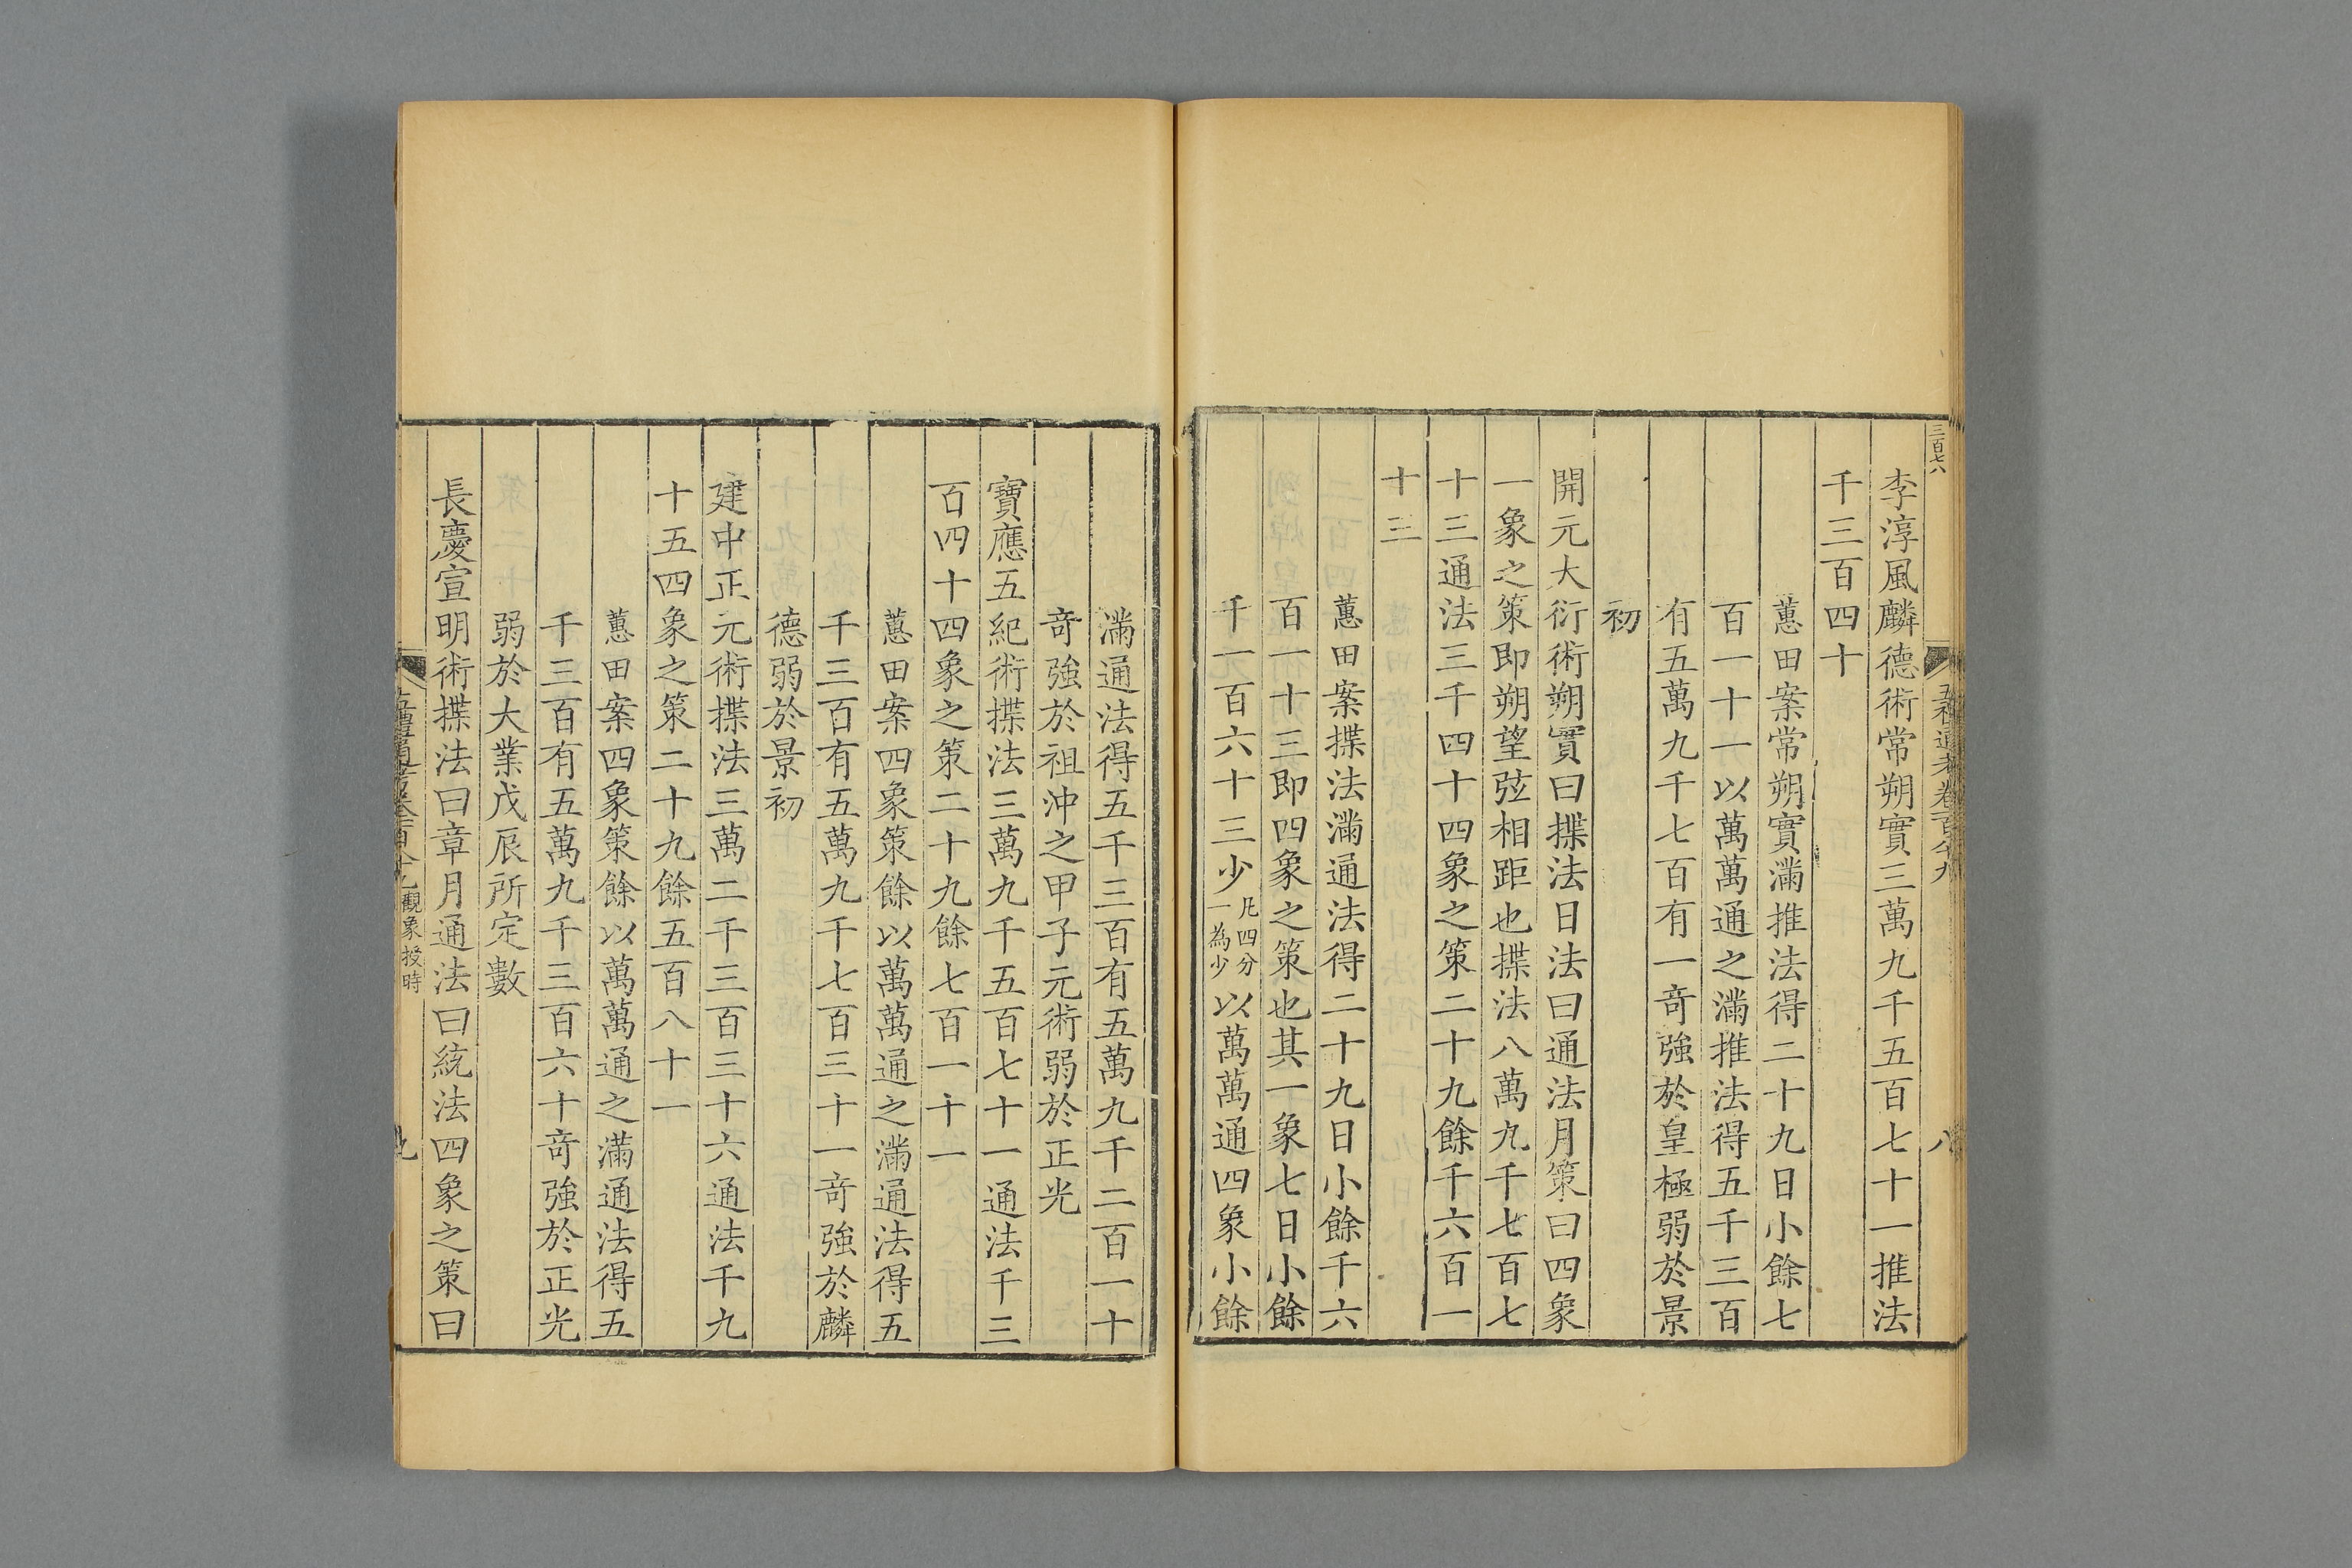 三百七八
五禮通考卷一百八十九
八
李淳風麟德術常朔實三萬九千五百七十一推法
千三百四十
蕙田案常朔實滿推法得二十九日小餘七
百一十一以萬萬通之滿推法得五千三百
有五萬九千七百有一竒強於皇極弱於景
初
開元大衍術朔實曰揲法日法曰通法月策曰四象
一象之策即朔望弦相距也揲法八萬九千七百七
十三通法三千四十四象之策二十九餘千六百一
十三
蕙田案揲法滿通法得二十九日小餘千六
百一十三即四象之策也其一象七日小餘
千一百六十三少凡四分一為少以萬萬通四象小餘
滿通法得五千三百有五萬九千二百一十
竒強於祖沖之甲子元術弱於正光
寶應五紀術揲法三萬九千五百七十一通法千三
百四十四象之策二十九餘七百一十一
蕙田案四象策餘以萬萬通之滿通法得五
千三百有五萬九千七百三十一竒強於麟
德弱於景初
建中正元術揲法三萬二千三百三十六通法千九
十五四象之策二十九餘五百八十一
蕙田案四象策餘以萬萬通之滿通法得五
千三百有五萬九千三百六十竒強於正光
弱於大業戊辰所定數
長慶宣明術揲法曰章月通法曰統法四象之策曰
觀象授時
九